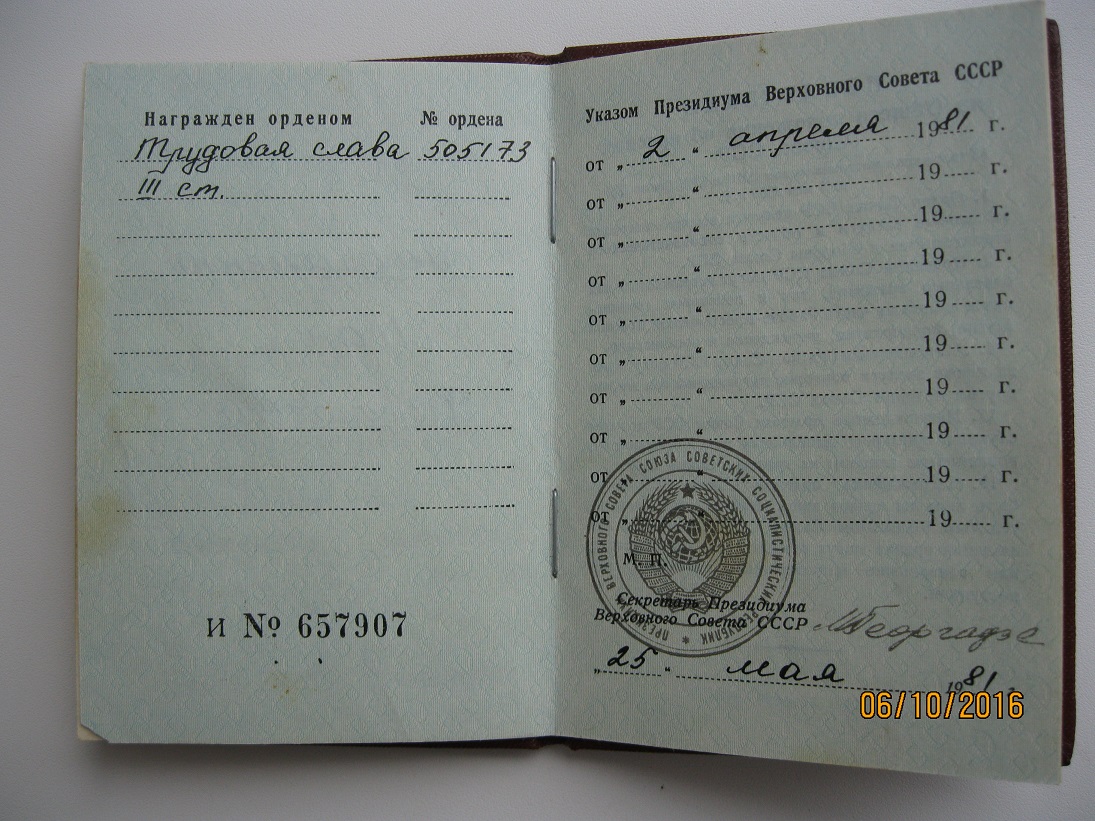 Награжден орденом № ордена
Трудовая слава 505173
III ст.
И № 657907
Указом Президиума Верховного Совета СССР
от „ 2 “ апреля 1981 г.
от „ “ 19 г.
от „ “ 19 г.
от „ “ 19 г.
от „ “ 19 г.
от „ “ 19 г.
от „ “ 19 г.
от „ “ 19 г.
от „ “ 19 г.
от „ “ 19 г.
ПРЕЗИДИУМ ВЕРХОВНОГО СОВЕТА СОЮЗА СОВЕТСКИХ СОЦИАЛИСТИЧЕСКИХ РЕСПУБЛИК *
М. П.
Секретарь Президиума
Верховного Совета СССР МГеоргадзе
„ 25 “ мая 1981 г.
06/10/2016